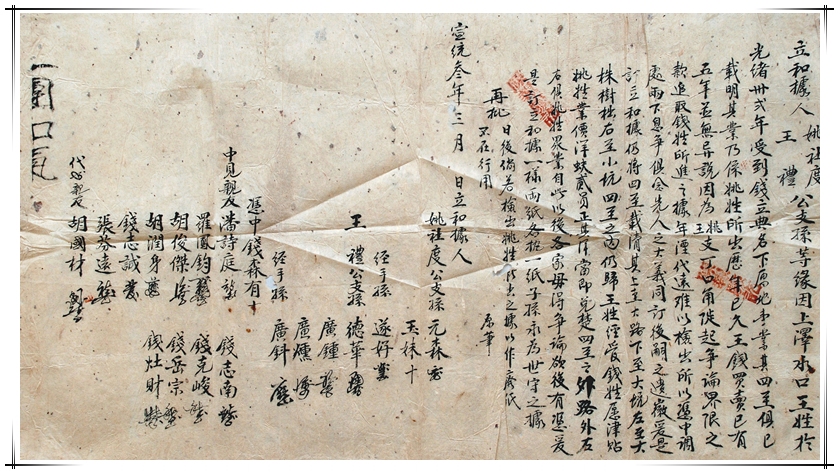 立和據人姚祖度王禮公支孫等緣因上澤水口王姓於
光緒卅弍年受到錢立典名下原地弟業其四至俱已
載明其業乃係姚姓所出歷年已久王錢買賣已有
五年並無异說因為王姚支丁口角陡起爭論界限之
款追取錢姓所進之據年湮代遠难以檢出所以憑中調
處兩下息爭俱念先人之大義同訂後嗣之遺徽爰是
訂立和據仍將四至載清其上至大路下至大坑左至大
株樹垯右至小坑四至之內仍歸王姓僅愛錢姓唇津貼
姚姓業價洋蚨貳員正其洋當即兌楚四至之外路外石
右俱姚姓眾業自此以後各家毋得爭論欲後有憑爰
是訂立和據一樣兩紙各拒一紙子孫永為世守之據
再批 日後倘若檢出姚姓所出之據以作廢紙
不在行用 原筆
宣統叁年三月 日立和據人
姚祖度公支孫 元森
玉林十
王禮公支孫 經手孫 遂好
德華
廣鍾
廣煙
經手孫 廣鈄
憑中錢森有十
中見親友潘詩庭 錢志南
羅鳳鈞 錢元峻
胡俊傑 錢岳宗
胡潤身 錢灶財
錢志誠
張芬遠
代必親友 胡國材
一團和氣